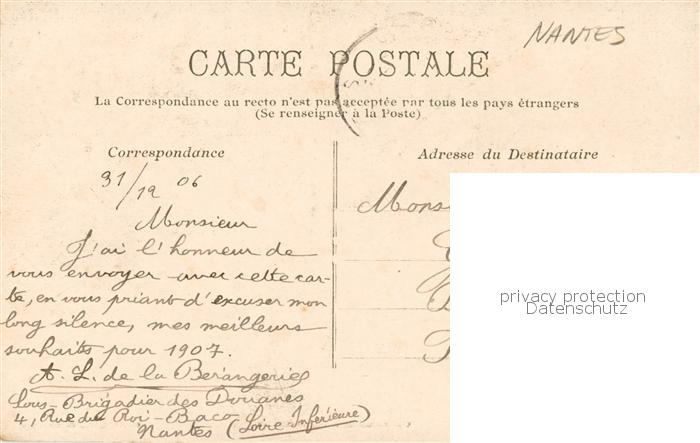 NANTES
CARTE POSTALE
La Correspondance au recto n'est pas acceptée par tous les pays étrangers
(Se renseigner à la Poste)
Correspondance
Adresse du Destinataire
31/12 06
Monsieur
J'ai l'honneur de
vous envoyer avec cette car-
te, en vous priant d'excuser mon
long silence, mes meilleurs
souhaits pour 1907.
A. L. de la Berangerie
Sous-Brigadier des Douanes
4, Rue du Roi-Baco
Nantes (Loire Inférieure)
Monsi
privacy protection
Datenschutz